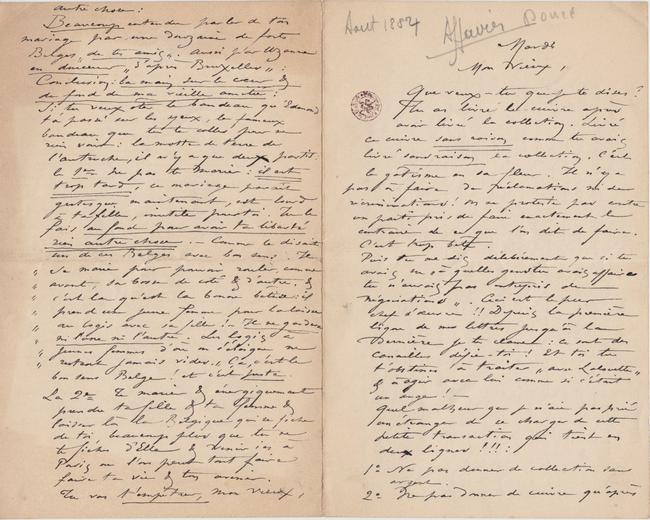 Aout 1884
Affaires Doucé
Mardi
Mon Vieux,
Que veux-tu que je te dises?
Tu as livré le cuivre après
avoir livré la collection. Livré
ce cuivre sans raison comme tu avais
livré sans raison la collection. C'est
le gâtisme en sa fleur. Il n'y a
pas à faire de réclamations ni de
récriminations! On ne proteste pas contre
un parti pris de faire exactement le
contraire de ce que l'on dit de faire.
C'est trop bête.
Puis tu me dis délibérément que si tu
avais su à quelles gens tu avais affaire
tu n'aurais pas entrepris de
négociations". Ceci est le pur
chef d'œuvre!! Depuis la première
ligne de mes lettres jusqu'à la
dernière je te clame: ce sont des
canailles défie-toi! Et toi tu
t'obstines à traiter "avec
& à agir avec lui comme si c'était
un ange! -
Quel malheur que je n'aie pas prié
un étranger de se charger de cette
petite transaction qui tient en
deux lignes!!!:
1° Ne pas donner de collection sans
argent.
2° Ne pas donner de cuivre qu'après
autre chose:
Beaucoup entendu parler de ton
mariage par une douzaine de forts
Belges "de tes amis". Aussi par Uzanne
en douceur "d'après Bruxelles":
Conclusion: la main sur le cœur &
du fond de ma vieille amitié:
Si tu veux ôter le bandeau que
t'a passé sur les yeux, le fameux
bandeau que tu te colles pour ne
rien voir: la motte de terre de
l'autruche, il n'y a que deux partis.
le 1er ne pas te marier: il est
trop tard, ce mariage paraît
grotesque maintenant, est lourd
à ta fille, inutile pour toi. Tu le
fais au fond pour avoir ta liberté
rien autre chose. - Comme le disait
un de ces Belges avec bon sens. "Il
" se marie pour pouvoir rouler, comme
" avant, sa bosse de côté & d'autre. &
" c'est là qu'est la bonne bêtise: il
" prend une jeune femme pour la laisser
" au logis avec sa fille! Il ne gardera
" ni l'une ni l'autre. Les logis à
" jeunes femmes d'où on s'éloigne ne
" restent jamais vides". Ça, c'est le
bon sens Belge! et c'est juste.
La 2me Te marier & énergiquement
prendre ta fille & ta femme &
laisser là la Belgique qui se fiche
de toi, beaucoup plus que tu ne
te fiche d'Elle & venir ici à
Paris où l'on peut tout faire
faire ta vie & ton avenir.
Tu vas t'empêtrer, mon vieux,